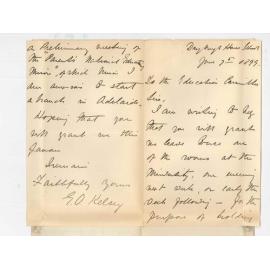 June 7th 1899.
To the Education Committee
Sir,
I am writing to beg
that you will grant
me leave
of the rooms at the
one evening
next week, or early the
week following - for the
purpose of holding
a Preliminary meeting of
the "Parents' National Education
Union", of which Union I
am anxious to start
a branch in Adelaide.
Hoping that you
will grant me this
favour
I remain
Faithfully yours
E. O. Kelsey